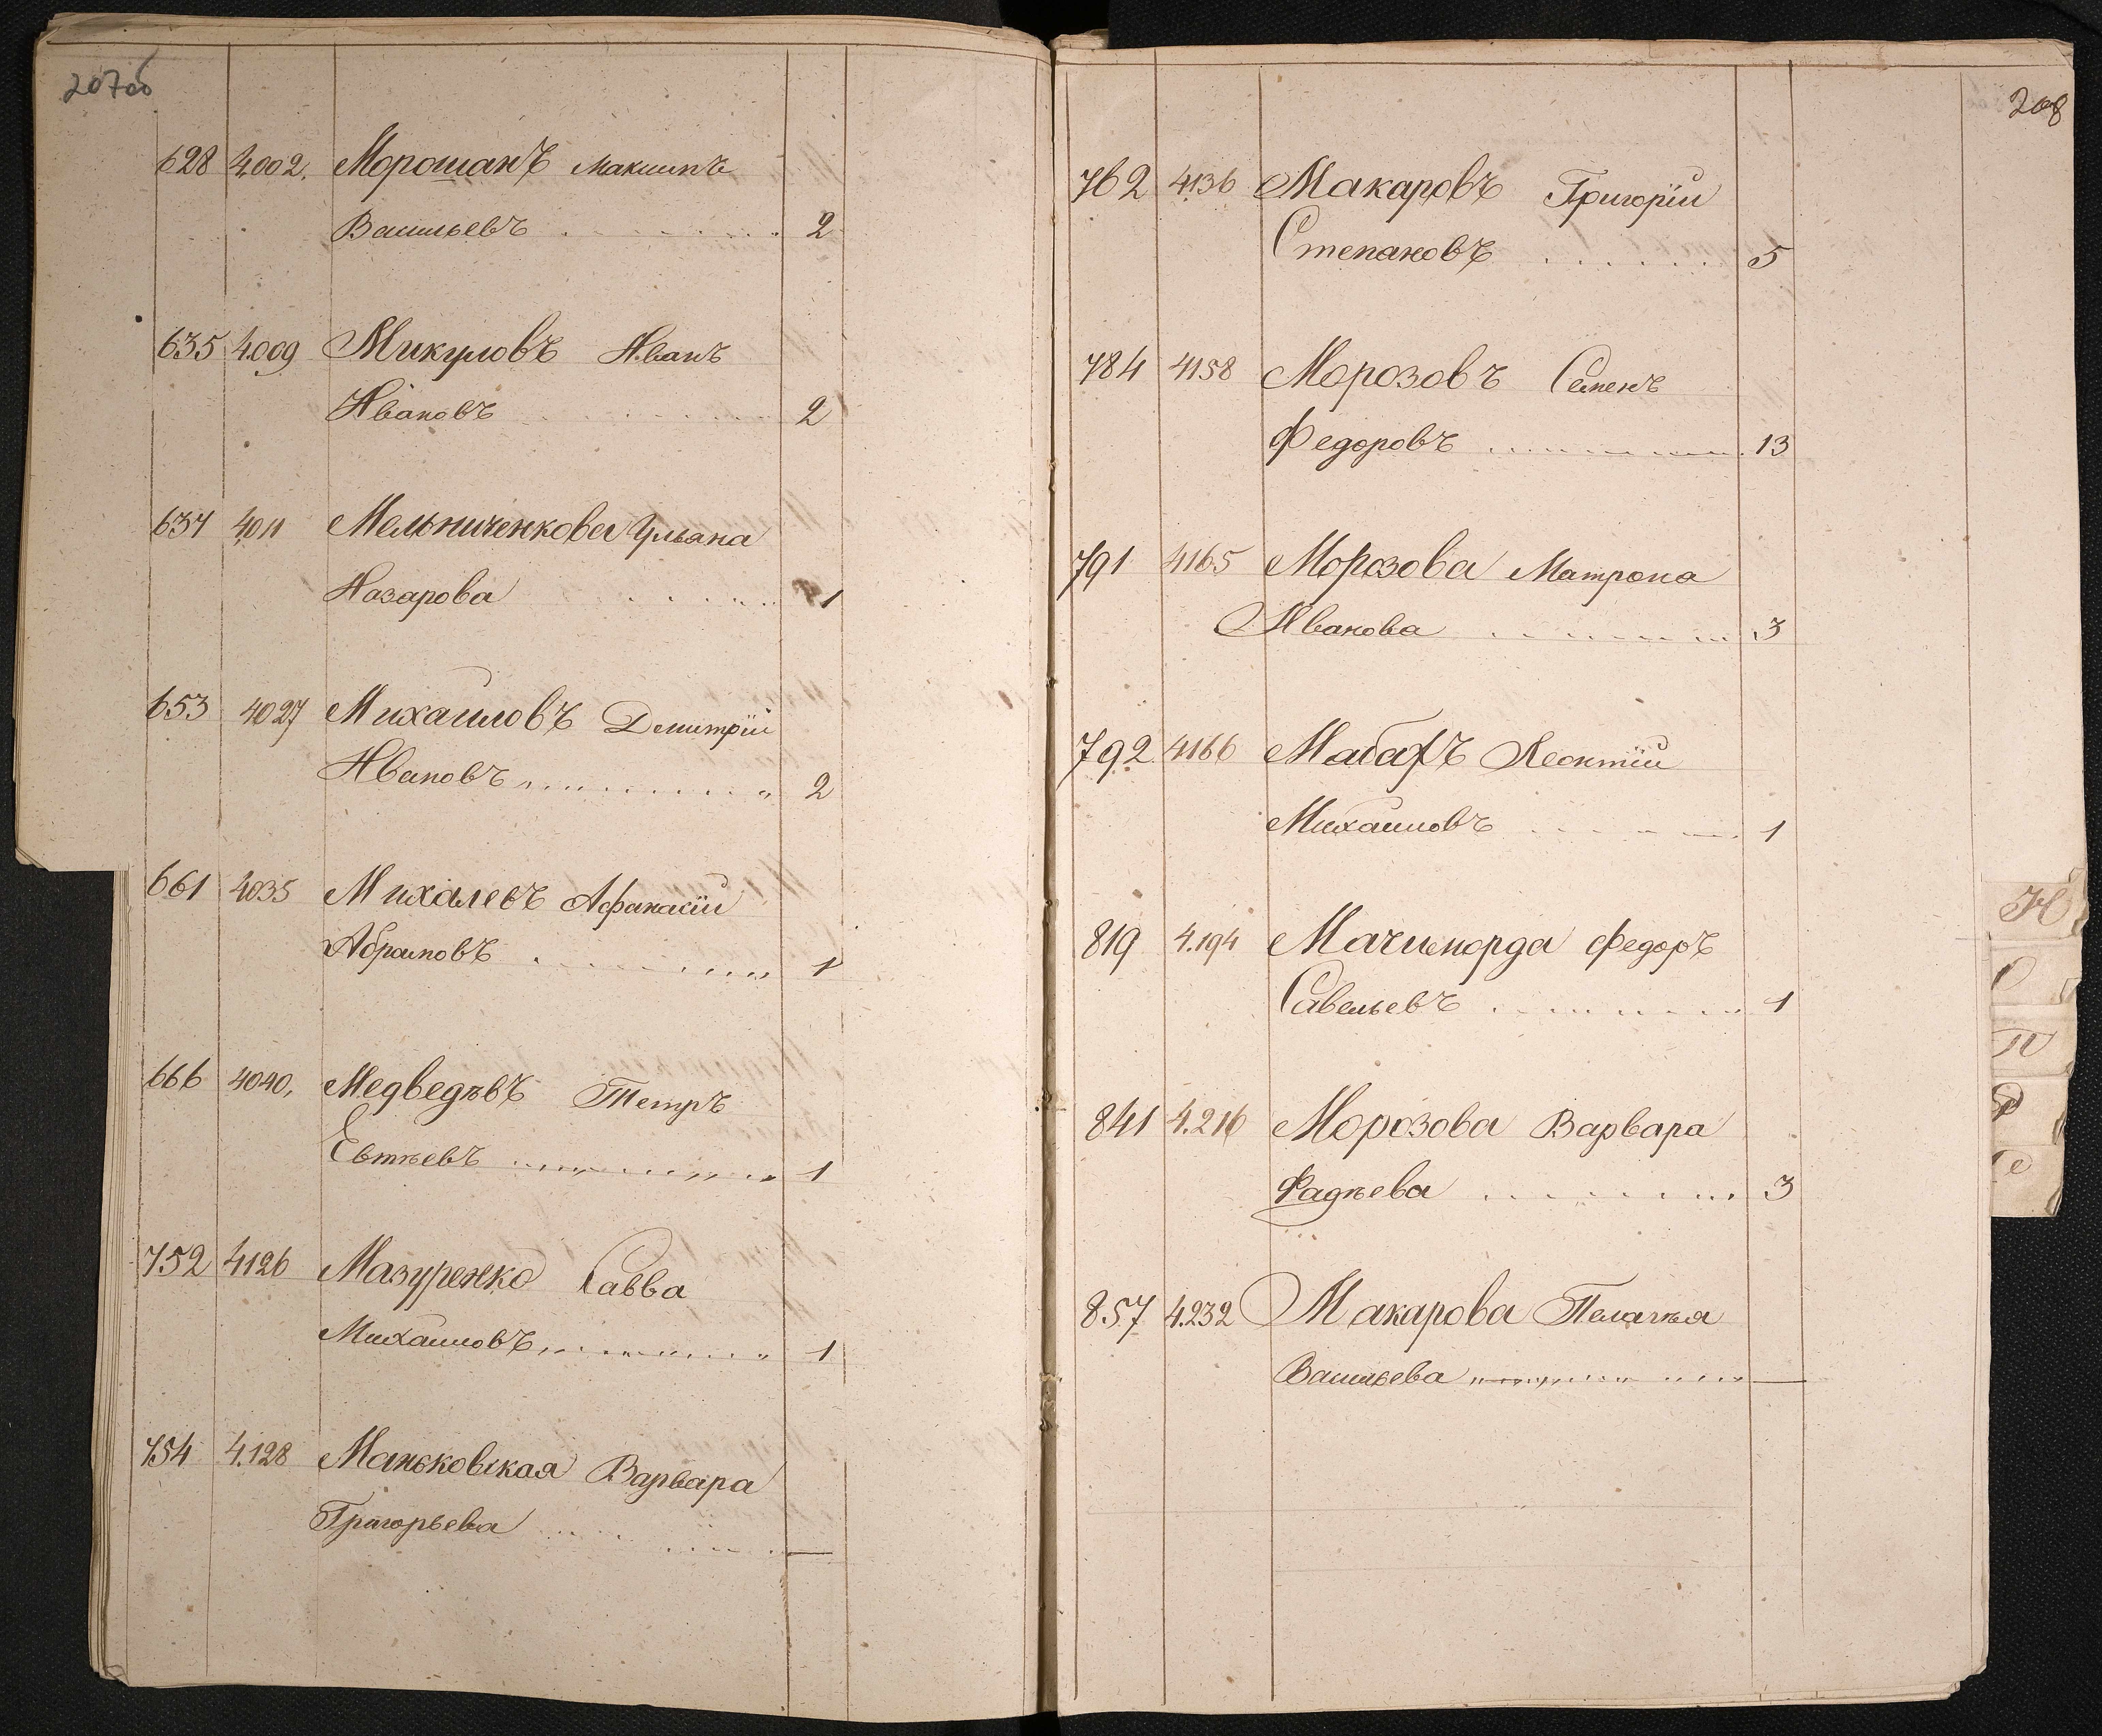 207об
628 4,002. Морошанъ Максимъ
Васильевъ 2
635 4.009 Микуловъ Иванъ
Ивановъ 2
637 4,011 Мельниченкова Ульяна
Назарова 1
653 4027 Михаиловъ Дмитрій
Ивановъ 2
661 4035 Михалевъ Афанасій
Абрамовъ 1
666 4040, Медведѣвъ Петръ
Евтѣевъ 1
752 4126 Мазуренко Савва
Михаиловъ 1
754 4.128 Маньковская Варвара
Григорьева —
208
762 4136 Макаровъ Григорій
Степановъ 5
784 4158 Морозовъ Семенъ
Федоровъ 13
791 4165 Морозова Матрона
Иванова 3
792 4166 Леонтій
Михаиловъ 1
819 4.194 Мачиморда Федоръ
Савельевъ 1
841 4.216 Морозова Варвара
Фадѣева 3
857 4.232 Макарова Пелагѣя
Васильева —
Н
О
П
Р
С